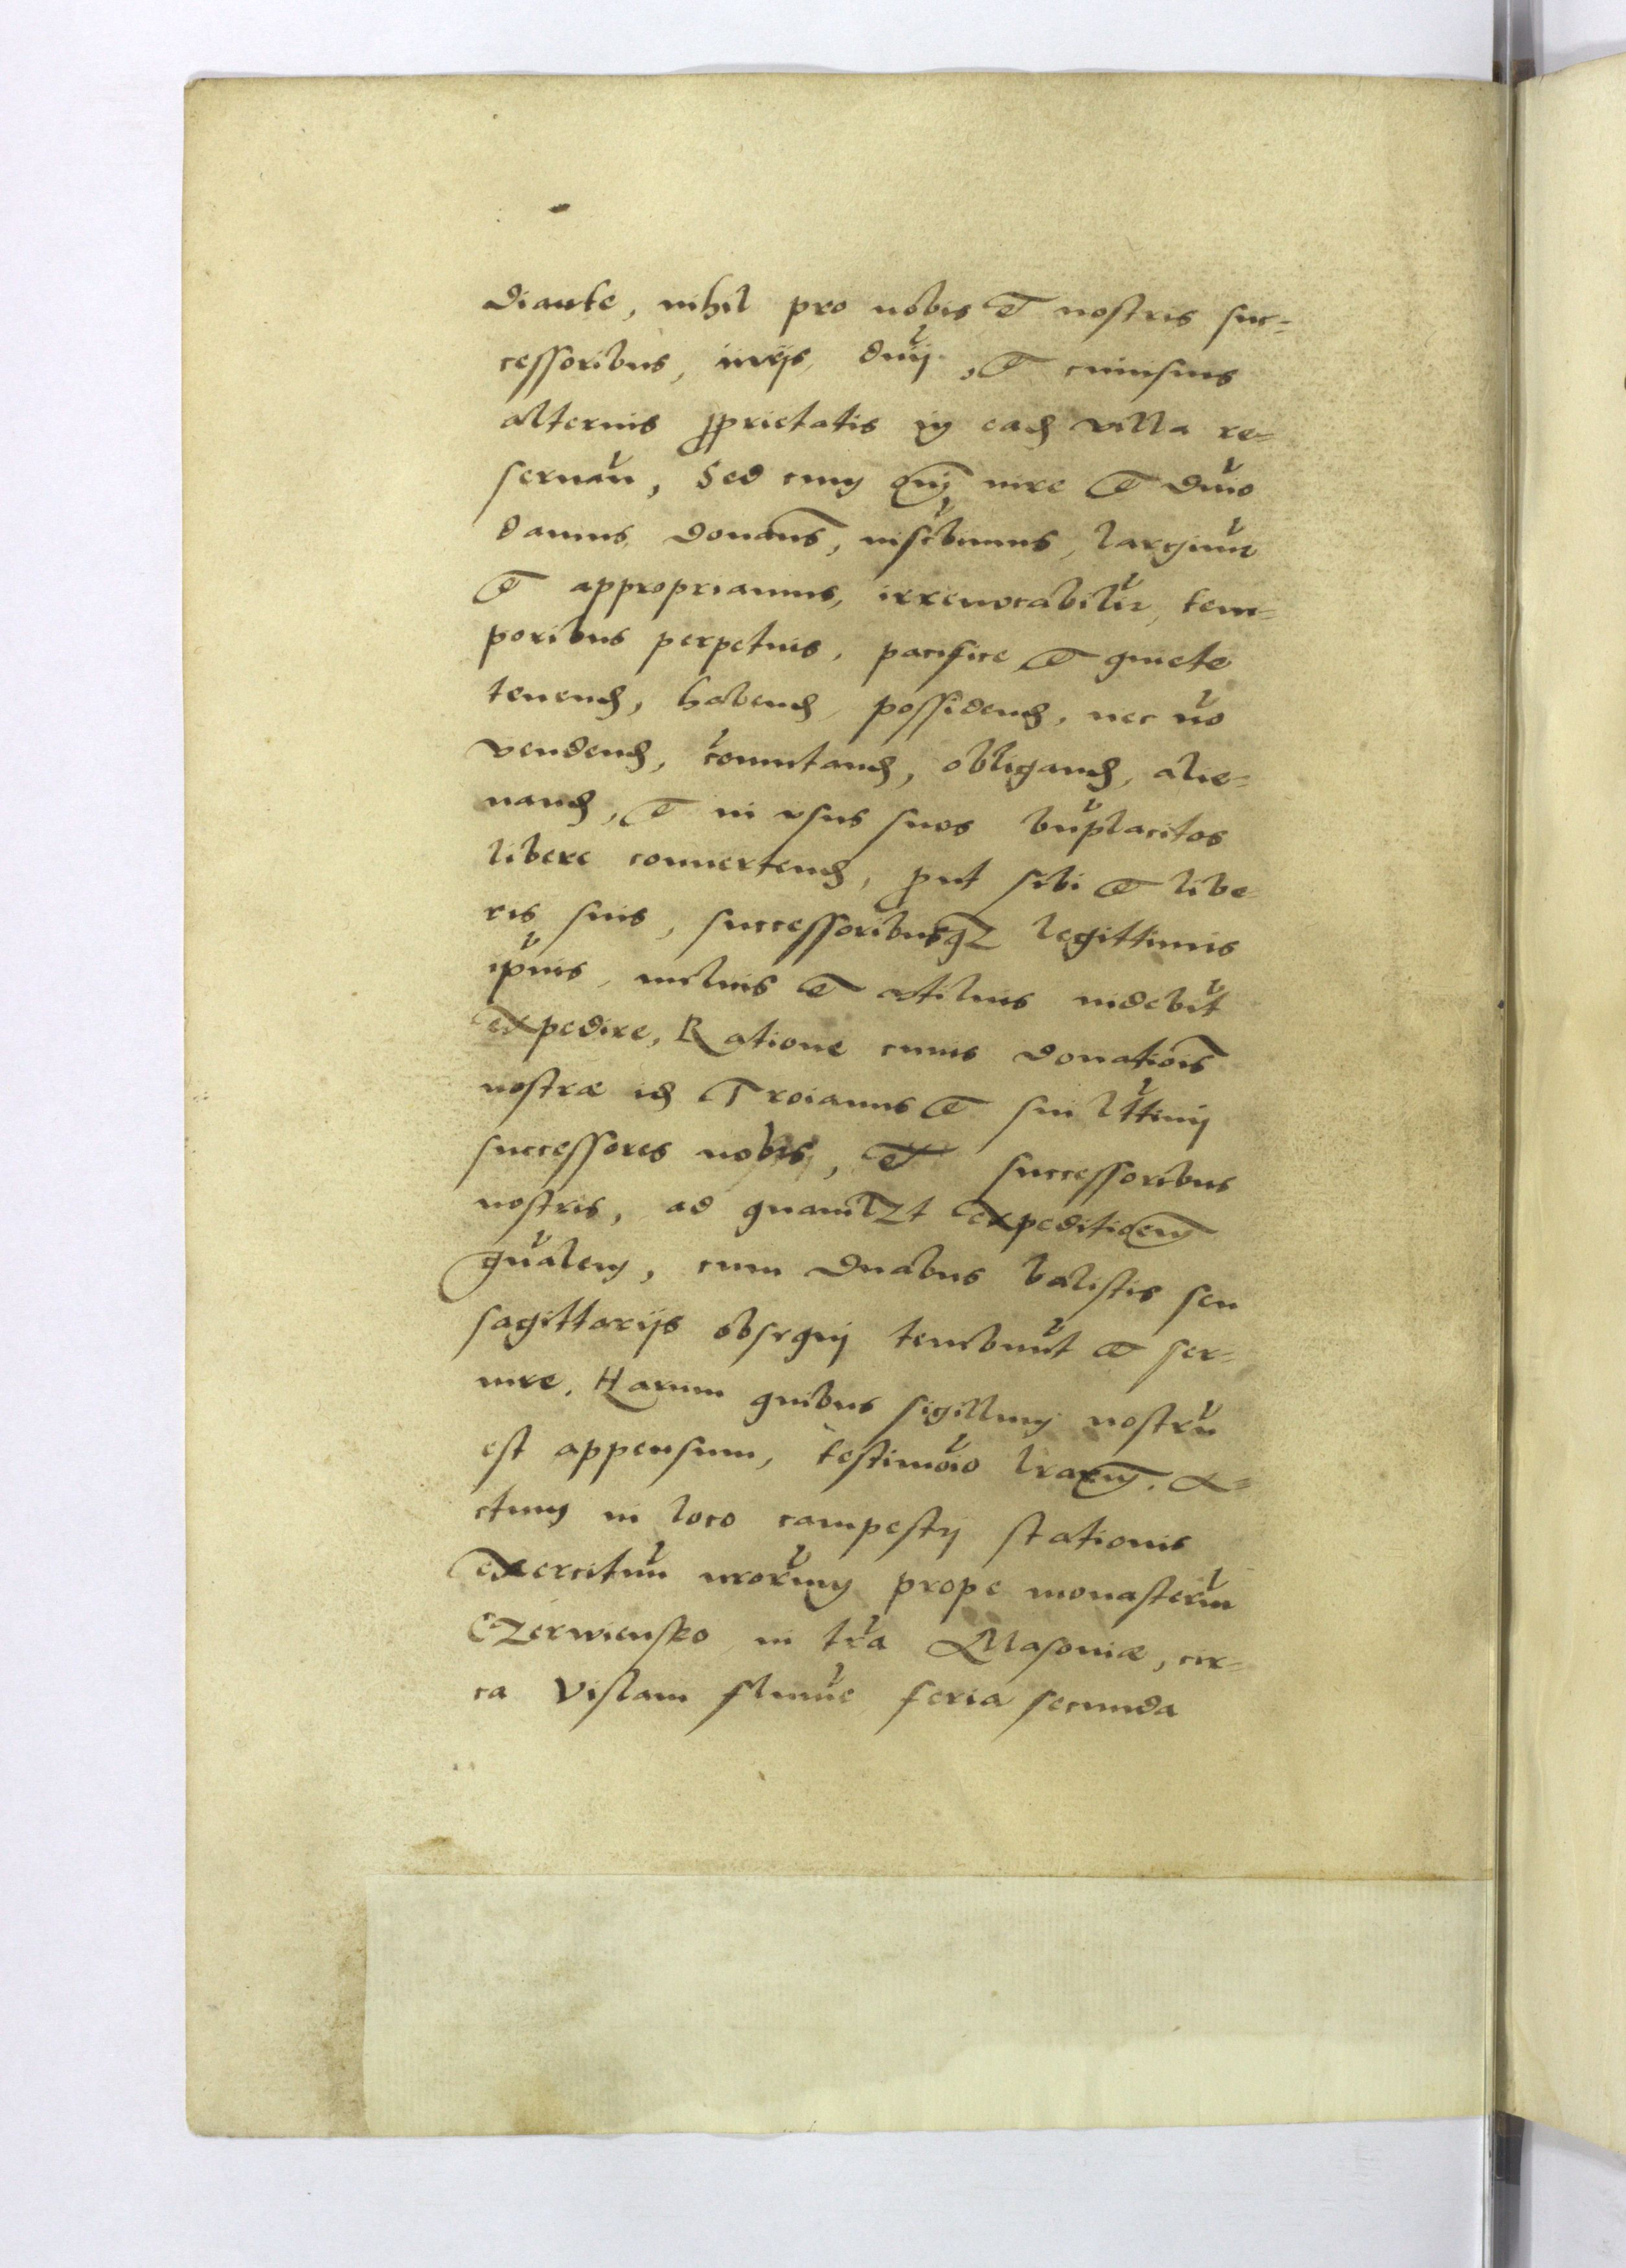 diante, nihil pro nobis et nostris suc=
cessoribus, iurijs, dnij, et cuiusuis
alterius proprietatis in ead villa re=
seruan, Sed cum omi iure et dnio
damus donams, inscbimus, largimur
et appropriamus, irreuocabilir, tem=
poribus perpetuis, pacifice et quiete
tenend, habend, possidend, nec no
vendend, comutand, obligand, alie=
nand, et in vsus suos bnplacitos
libere conuertend, put sibi et libe=
ris suis, successoribusqz legittimis
ipius, melius et vtilius videbit
expedire, Ratione cuius donatiois
nostræ id Troianus et sui lttimj
successores nobis, et successoribus
nostris, ad quamlzt expeditioem
gnalem, cum duabus balistis seu
sagittarijs obseqij tenebunt et ser=
uire. Harum quibus sigillum nostru
est appensum, testimoio lrarum. A=
ctum in loco campestrj stationis
exercituu nrorum prope monasteriu
Czerwiensko in tra Masouiæ, cir=
ca Vislam fluuie feria secunda